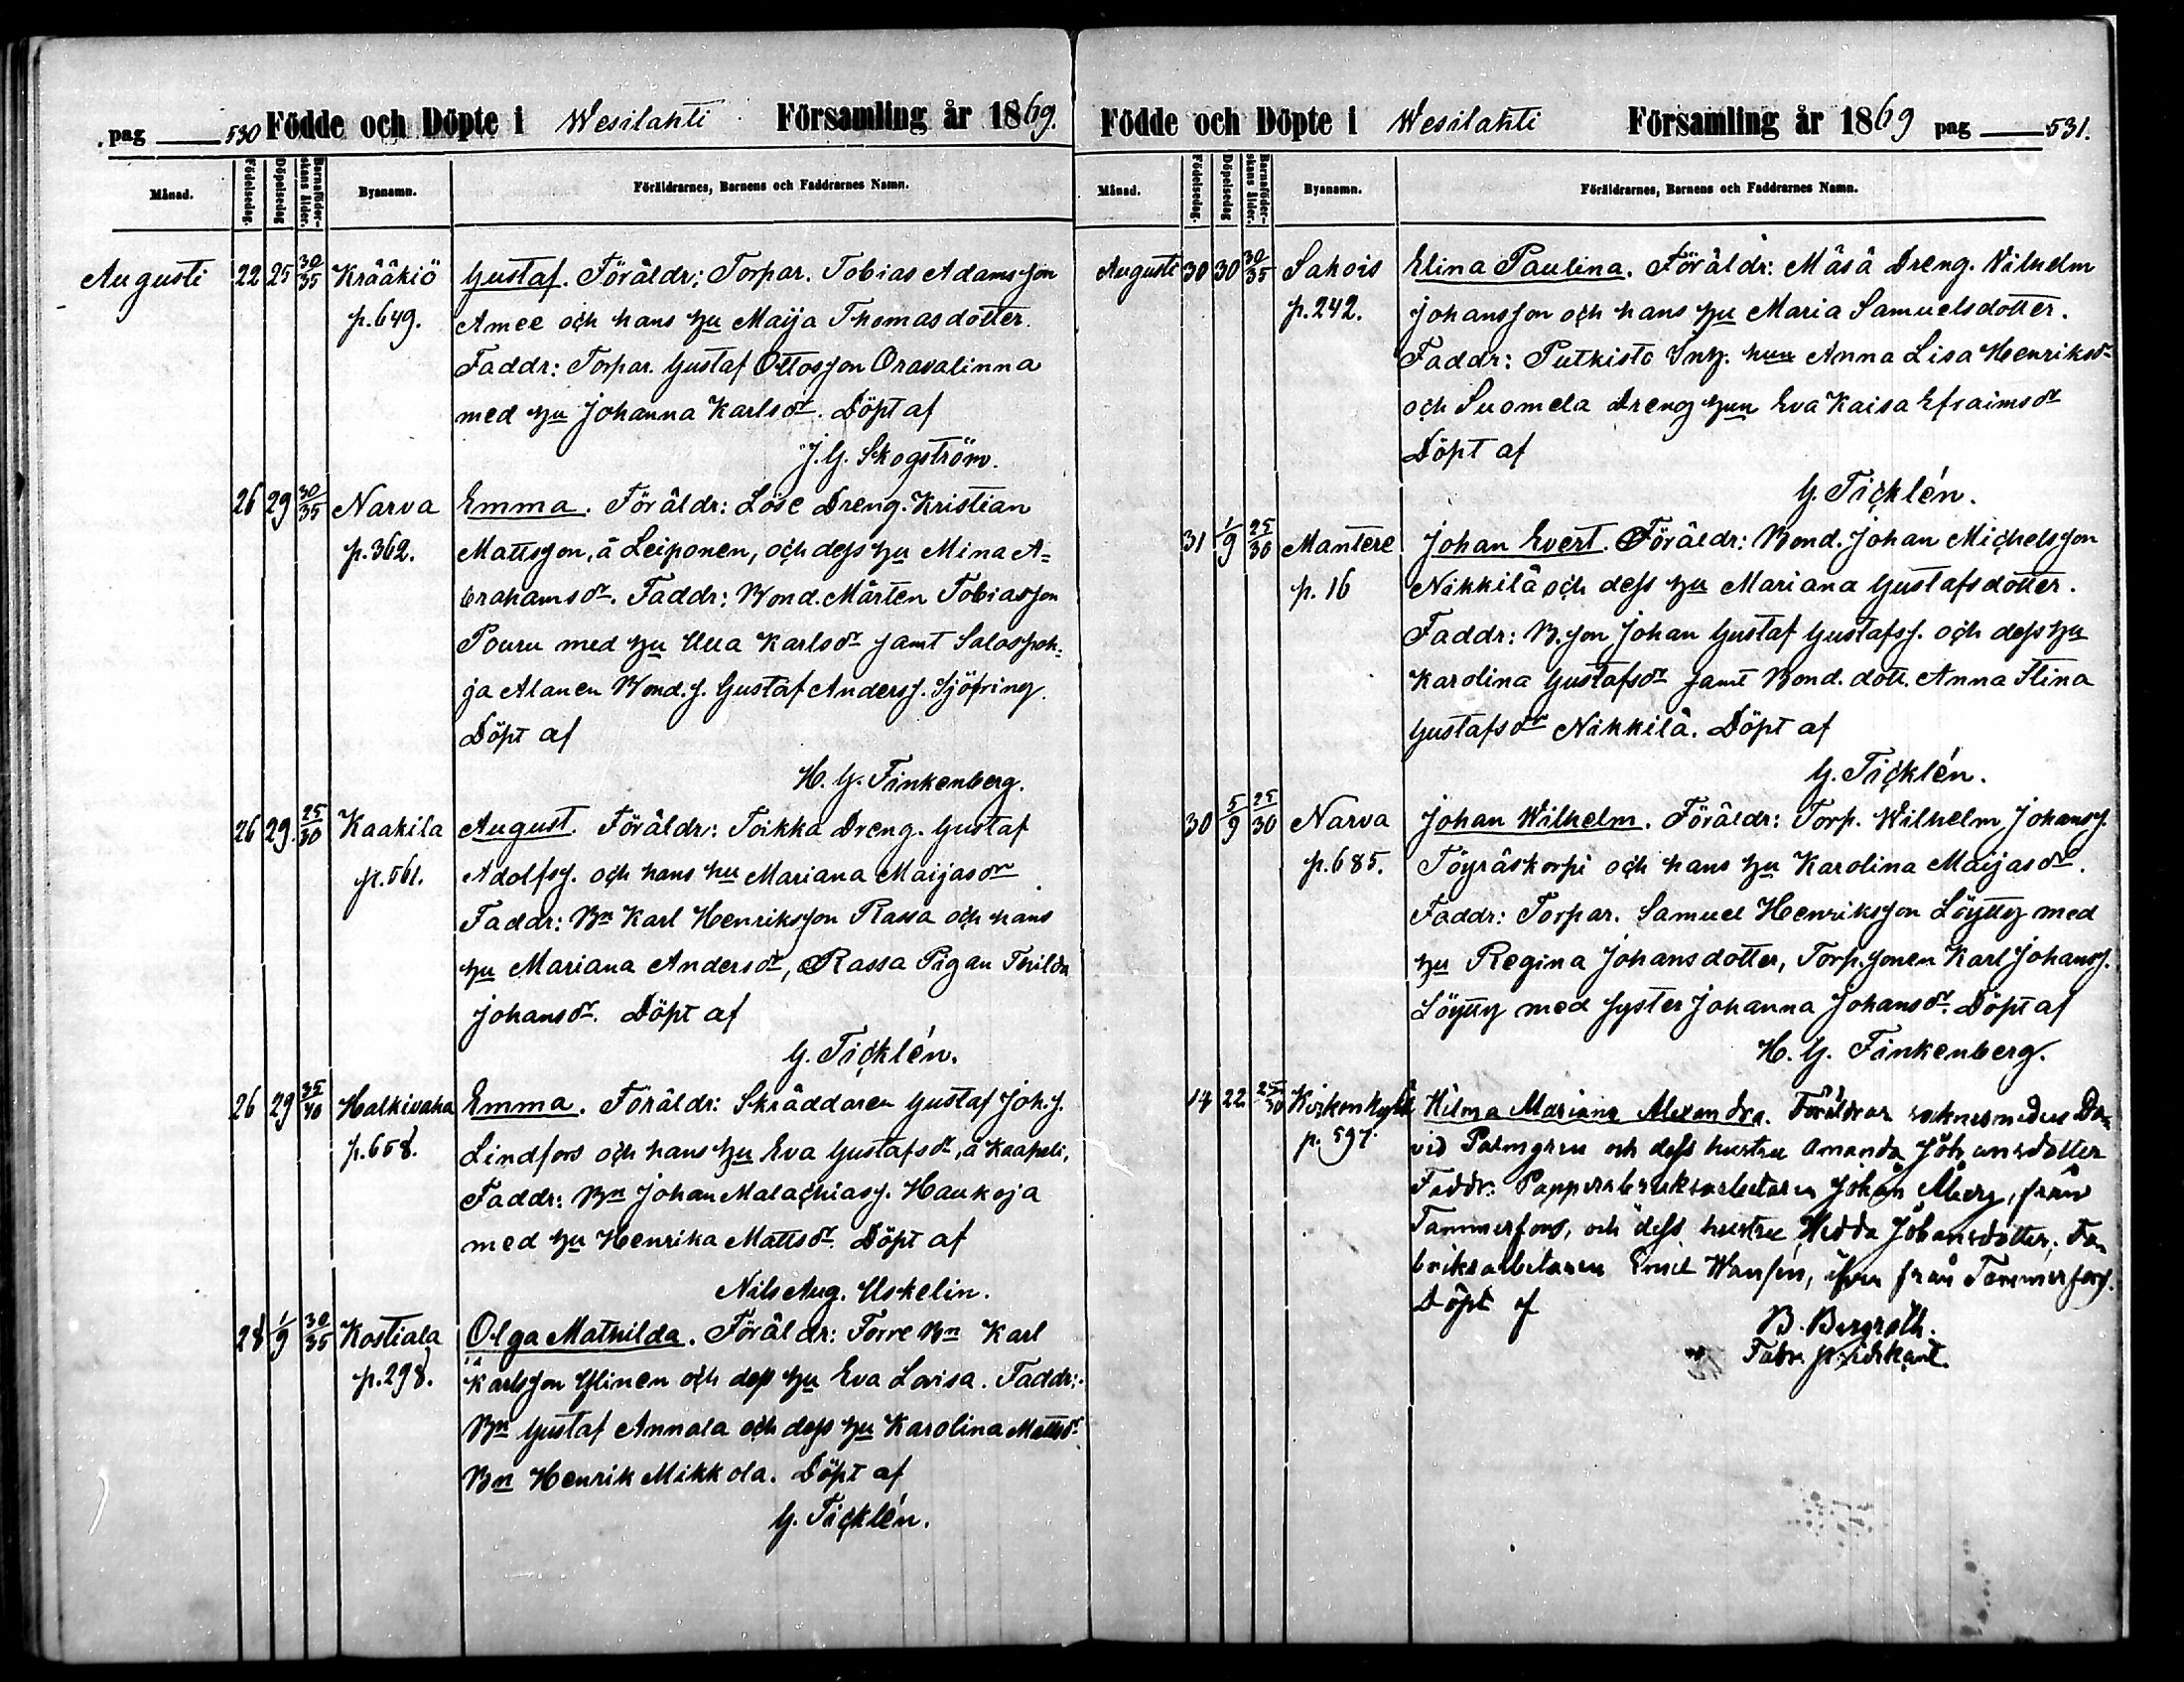 pag 530 Födde och Döpte i Wesilahti Församling år 1869.
Månad. Födelsedag. Döpelsedag Barnaföderskans ålder. Byanamn. Föräldrarnes, Barnens och Faddrarnes Namn.
Augusti 22 25 30/35 Krääkiö Gustaf. Föräldr: Torpar. Tobias Adamsson
p. 649. Amee och hans hu Maija Thomasdotter.
Faddr: Torpar. Gustaf Ottosson Oravalinna
med hu Johanna Karlsdr. Döpt af
J. G. Skogström.
26 29 30/35 Narva Emma. Föräldr: Löse Dreng. Kristian
p. 362. Mattsson, å Leiponen, och dess hu Mina A=
brahamsdr. Faddr: Bond. Mårten Tobiasson
Pouru med hu Ulla Karlsdr samt Salospoh=
ja Alanen Bond. s. Gustaf Anders s. Sjöfring.
Döpt af
H. G. Finkenberg.
26 29. 25/30 Kaakila August. Föräldr: Toikka Dreng. Gustaf
p. 561. Adolfs s. och hans hu Mariana Maijasdr.
Faddr: Bn Karl Henriksson Rassa och hans
hu Mariana Andersdr, Rassa Pigan Thilda
Johansdr. Döpt af
G. Ticklén.
26 29 35/40 Halkivaha Emma. Föräldr: Skräddaren Gustaf Joh. s.
p. 658. Lindfors och hans hu Eva Gustafsdr, å Kaapeli,
Faddr: Bn Johan Malachias s. Haukoja
med hu Henrika Mattsdr. Döpt af
Nils Aug. Uskelin.
28 1/9 30/35 Kostiala Olga Mathilda. Föräldr: Torre Bn Karl
p. 298. Karlsson Ylinen och dess hu Eva Lovisa. Faddr:
Bn Gustaf Annala och dess hu Karolina Mattsdr
Bn Henrik Mikkola. Döpt af
G. Ticklén.
Födde och Döpte i Wesilahti Församling år 1869 pag 531.
Månad. Födelsedag. Döpelsedag Barnaföderskans ålder. Byanamn. Föräldrarnes, Barnens och Faddrarnes Namn.
Augusti 30 30 30/35 Sakois Elina Paulina. Föräldr: Mäsä Dreng. Wilhelm
p. 242. Johansson och hans hu Maria Samuelsdotter.
Faddr: Putkisto Inh. hun Anna Lisa Henriksdr
och Suomela Dreng hun Eva Kaisa Efraimsdr
Döpt af
G. Ticklén.
31 1/9 25/30 Mantere Johan Evert. Föräldr: Bond. Johan Michelsson
p. 16 Nikkilä och dess hu Mariana Gustafsdotter.
Faddr: B. son Johan Gustaf Gustafs s. och dess hu
Karolina Gustafsdr samt Bond. dott. Anna Stina
Gustafsdr Nikkilä. Döpt af
G. Ticklén.
30 5/9 25/30 Narva Johan Wilhelm. Föräldr: Torp. Wilhelm Johans s.
p. 685. Töyräskorpi och hans hu Karolina Maijasdr.
Faddr: Torpar. Samuel Henriksson Löytty med
hu Regina Johansdotter, Torp. sonen Karl Johans s.
Löytty med syster Johanna Johansdr. Döpt af
H. G. Finkenberg.
14 22 25/30 Kirkonkylä Hilma Mariana Alexandra. Föräldrar Da=
p. 597. vid Palmgren och dess hustru Amanda Johansdotter
Faddr: Pappersbruksarbetaren Johan Åberg, från
Tammerfors, och dess hustru Hedda Johansdotter, Fa=
briksarbetaren från Tammerfors.
Döpt af
B. Bergroth.